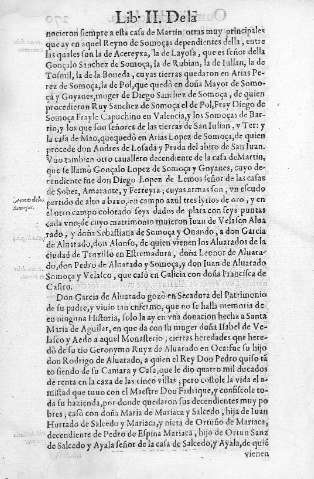 Lib. II. De la
nocieron siempre a esta casa de Martin, otras muy principales
que ay en aquel Reyno de Somoças dependientes della, entre
las quales son la de Acereyxa, la de Layosa, que es señor della
Gonçalo Sanchez de Somoça, la de Rubian, la de Iullan, la de
Tosmil, la de la Boueda, cuyas tierras quedaron en Arias Pe-
rez de Somoça, la de Pol, que quedò en doña Mayor de Somo-
ça y Goyanes, muger de Diego Sanchez de Somoça, de quien
procedieron Ruy Sanchez de Somoça el de Pol, Fray Diego de
Somoça Frayle Capuchino en Valencia, y los Somoças de Bar-
tin, y los que son señores de las tierras de San Iulian, y Ter: y
la casa de Mao, que quedò en Arias Lopez de Somoça, de quien
procede don Andres de Losada y Prada del abito de San Iuan.
Vuo tambien otro cauallero decendiente de la casa de Martin,
que se llamò Gonçalo Lopez de Somoça y Goyanes, cuyo de-
cendiente fue don Diego Lopez de Lemos señor de las casas
de Sober, Amarante, y Ferreyra; cuyas armas son, vn escudo
partido de alto a baxo, en campo azul tres lyrios de oro, y en
el otro campo colorado seys dados de plata con seys puntas
cada vno; de cuyo matrimonio nacieron Iuan de Velasco Alua
rado, y doña Sebastiana de Somoça y Ouando, a don Garcia
de Aluarado, don Alonso, de quien vienen los Aluarados de la
ciudad de Truxillo en Estremadura, doña Leonor de Aluara-
do, don Pedro de Aluarado y Somoça, y don Iuan de Aluarado
Somoça y Velasco, que casò en Galicia con doña Francisca de
Castro.
Don Garcia de Aluarado gozò en Secadura del Patrimonio
de su padre, y viuio tan enfermo, que no se halla memoria de
en ninguna Historia, solo la ay en vna donacion hecha a Santa
Maria de Aguilar, en que da con su muger doña Isabel de Ve-
lasco y Aedo a aquel Monasterio, ciertas heredades que here-
dò de su tio Geronymo Ruyz de Aluarado en Ocar: fue su hijo
don Rodrigo de Aluarado, a quien el Rey Don Pedro quiso tã
to siendo de su Camara y Casa, que le dio quatro mil ducados
de renta en la caza de las cinco villas, pero costole la vida el a-
mistad que tuuo con el Maestre Don Fadrique, y confiscole to-
da su hazienda, por donde quedaron sus decendientes muy po
bres; casò con doña Maria de Mariaca y Salcedo, hija de Iuan
Hurtado de Salcedo y Mariaca, y nieta de Ortuño de Mariaca,
decendiente de Pedro de Espina Mariaca, hijo de Ortun Sanz
de Salcedo y Ayala señor de la casa de Salcedo, y Ayala, de quiẽ
vienen